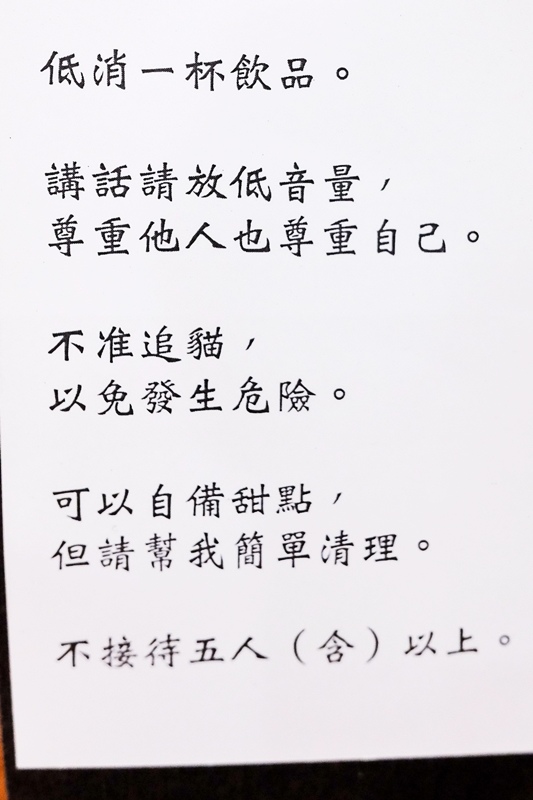 低消一杯飲品。
講話請放低音量，
尊重他人也尊重自己。
不准追貓，
以免發生危險。
可以自備甜點，
但請幫我簡單清理。
不接待五人（含）以上。